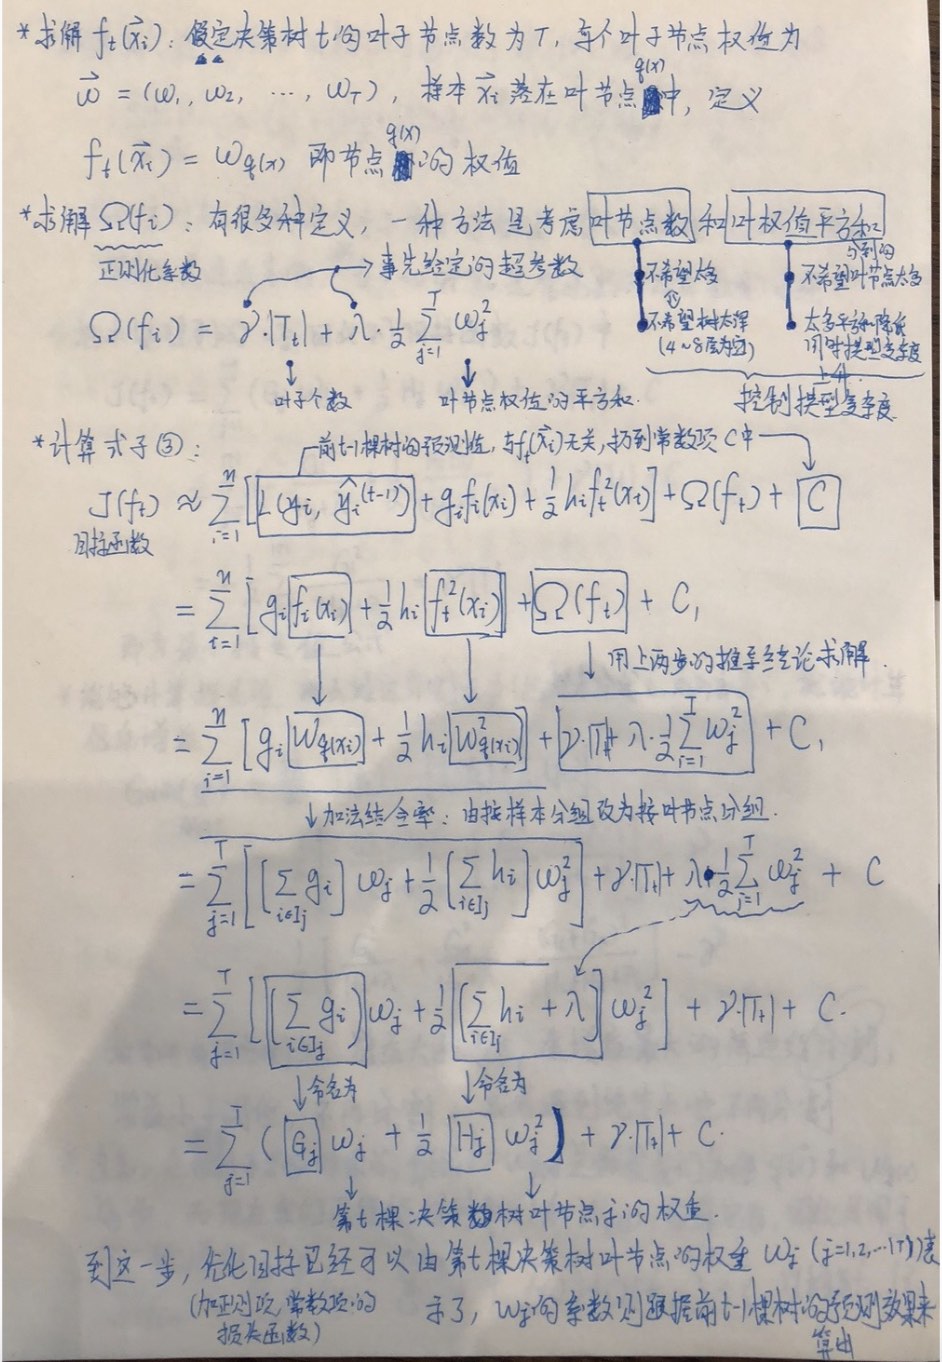 *求解 f_t(x⃗_i): 假定决策树 t 的叶子节点数为 T, 每个叶子节点权值为
w⃗ = (w_1, w_2, …, w_T), 样本 x⃗_i 落在叶节点 q(x) 中, 定义
f_t(x⃗_i) = w_{q(x)} 即节点 q(x) 的权值
*求解 Ω(f_i): 有很多种定义, 一种方法是考虑 叶节点数 和 叶权值平方和
正则化系数
事先给定的超参数
不希望太多
不希望树太深
(4~8层为宜)
分到的
不希望叶节点太多
控制模型复杂度
Ω(f_i) = γ·|T_t| + λ·½ Σ_{j=1}^{T} w_j²
叶子个数
叶节点权值的平方和.
*计算式子③:
前t-1棵树的预测值, 与f_t(x⃗_i)无关, 扔到常数项 C 中
J(f_t) ≈ Σ_{i=1}^{n} [L(y_i, ŷ_i^{(t-1)}) + g_i f_i(x_i) + ½ h_i f_t²(x_i)] + Ω(f_t) + C
目标函数
= Σ_{i=1}^{n} [g_i f_i(x_i) + ½ h_i f_t²(x_i)] + Ω(f_t) + C,
用上两步的推导结论求解.
= Σ_{i=1}^{n} [g_i w_{q(x_i)} + ½ h_i w²_{q(x_i)}] + γ·|T_t| + λ·½ Σ_{i=1}^{T} w_j² + C,
↓加法结合率: 由按样本分组改为按叶节点分组.
= Σ_{j=1}^{T} [[Σ_{i∈I_j} g_i] w_j + ½ [Σ_{i∈I_j} h_i] w_j²] + γ·|T_t| + λ·½ Σ_{i=1}^{T} w_j² + C
= Σ_{j=1}^{T} [(Σ_{i∈I_j} g_i) w_j + ½ (Σ_{i∈I_j} h_i + λ) w_j²] + γ·|T_t| + C.
↓命名为 ↓命名为
= Σ_{j=1}^{T} (G_j w_j + ½ H_j w_j²) + γ·|T_t| + C.
第t棵决策树叶节点j的权重.
到这一步, 优化目标已经可以由第t棵决策树叶节点的权重 w_j (j=1,2,…|T|) 表
(加正则项, 常数项的
损失函数)
示了, w_j的系数则跟据前t-1棵树的预测效果来
算出